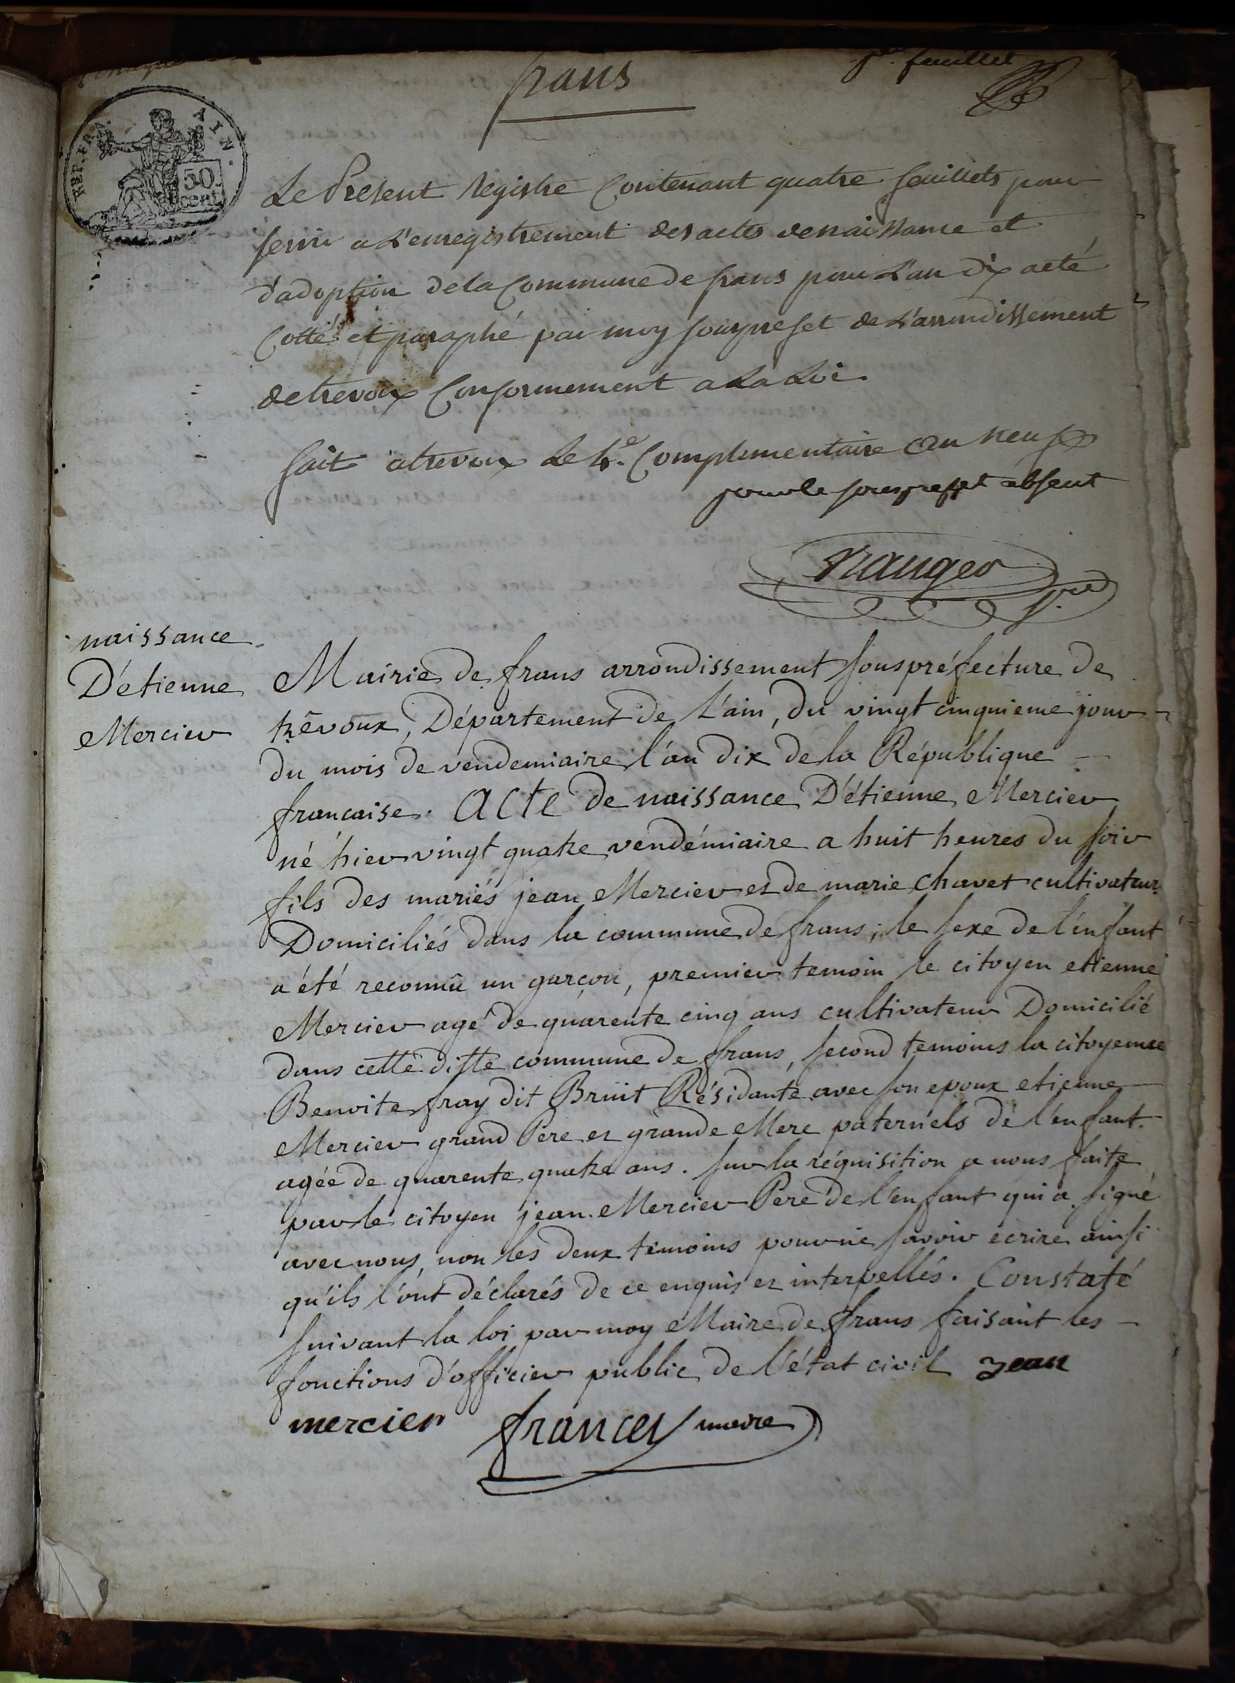 frans
1er. feuillet
REP. FRA. AIN.
50 cent
Le Present Registre Contenant quatre feuillets pour
servir a L'enregistrement des actes de naissance et
d'adoption de la Commune de frans pour L'an dix a eté
Cotté et paraphé par moy souspreset de L'arrondissement
de trevoux Conformement a La Loi.
fait a trevoux Le 4e. Complementaire an neuf
pour le souspreffet absent
naissance
D'étienne
Mercier
Mairie de frans arrondissement souspréfecture de
trévoux, Département de L'ain, du vingt cinquieme jour
du mois de vendemiaire l'an dix de la République
francaise. Acte de naissance D'étienne Mercier
né hier vingt quatre vendémiaire a huit heures du soir
fils des mariés jean Mercier et de marie chavet cultivateurs
Domiciliés dans la commune de frans; le sexe de l'enfant
a été reconnû un garçon, premier temoin le citoyen etienne
Mercier agé de quarente cinq ans cultivateur Domicilié
dans cette ditte commune de frans, second temoins la citoyenne
Benoite fray dit Bruit Résidante avec son epoux etienne
Mercier grand Pere et grande Mere paternels de l'enfant.
agée de quarente quatre ans. sur la réquisition a nous faite
par le citoyen jean Mercier Pere de l'enfant qui a signé
avec nous, non les deux temoins pour ne savoir ecrire ainsi
qu'ils l'ont déclarés de ce enquis et interpellés. Constaté
suivant la loi par moy Maire de frans faisant les
fonctions d'officier public de l'état civil jean
mercier frances maire